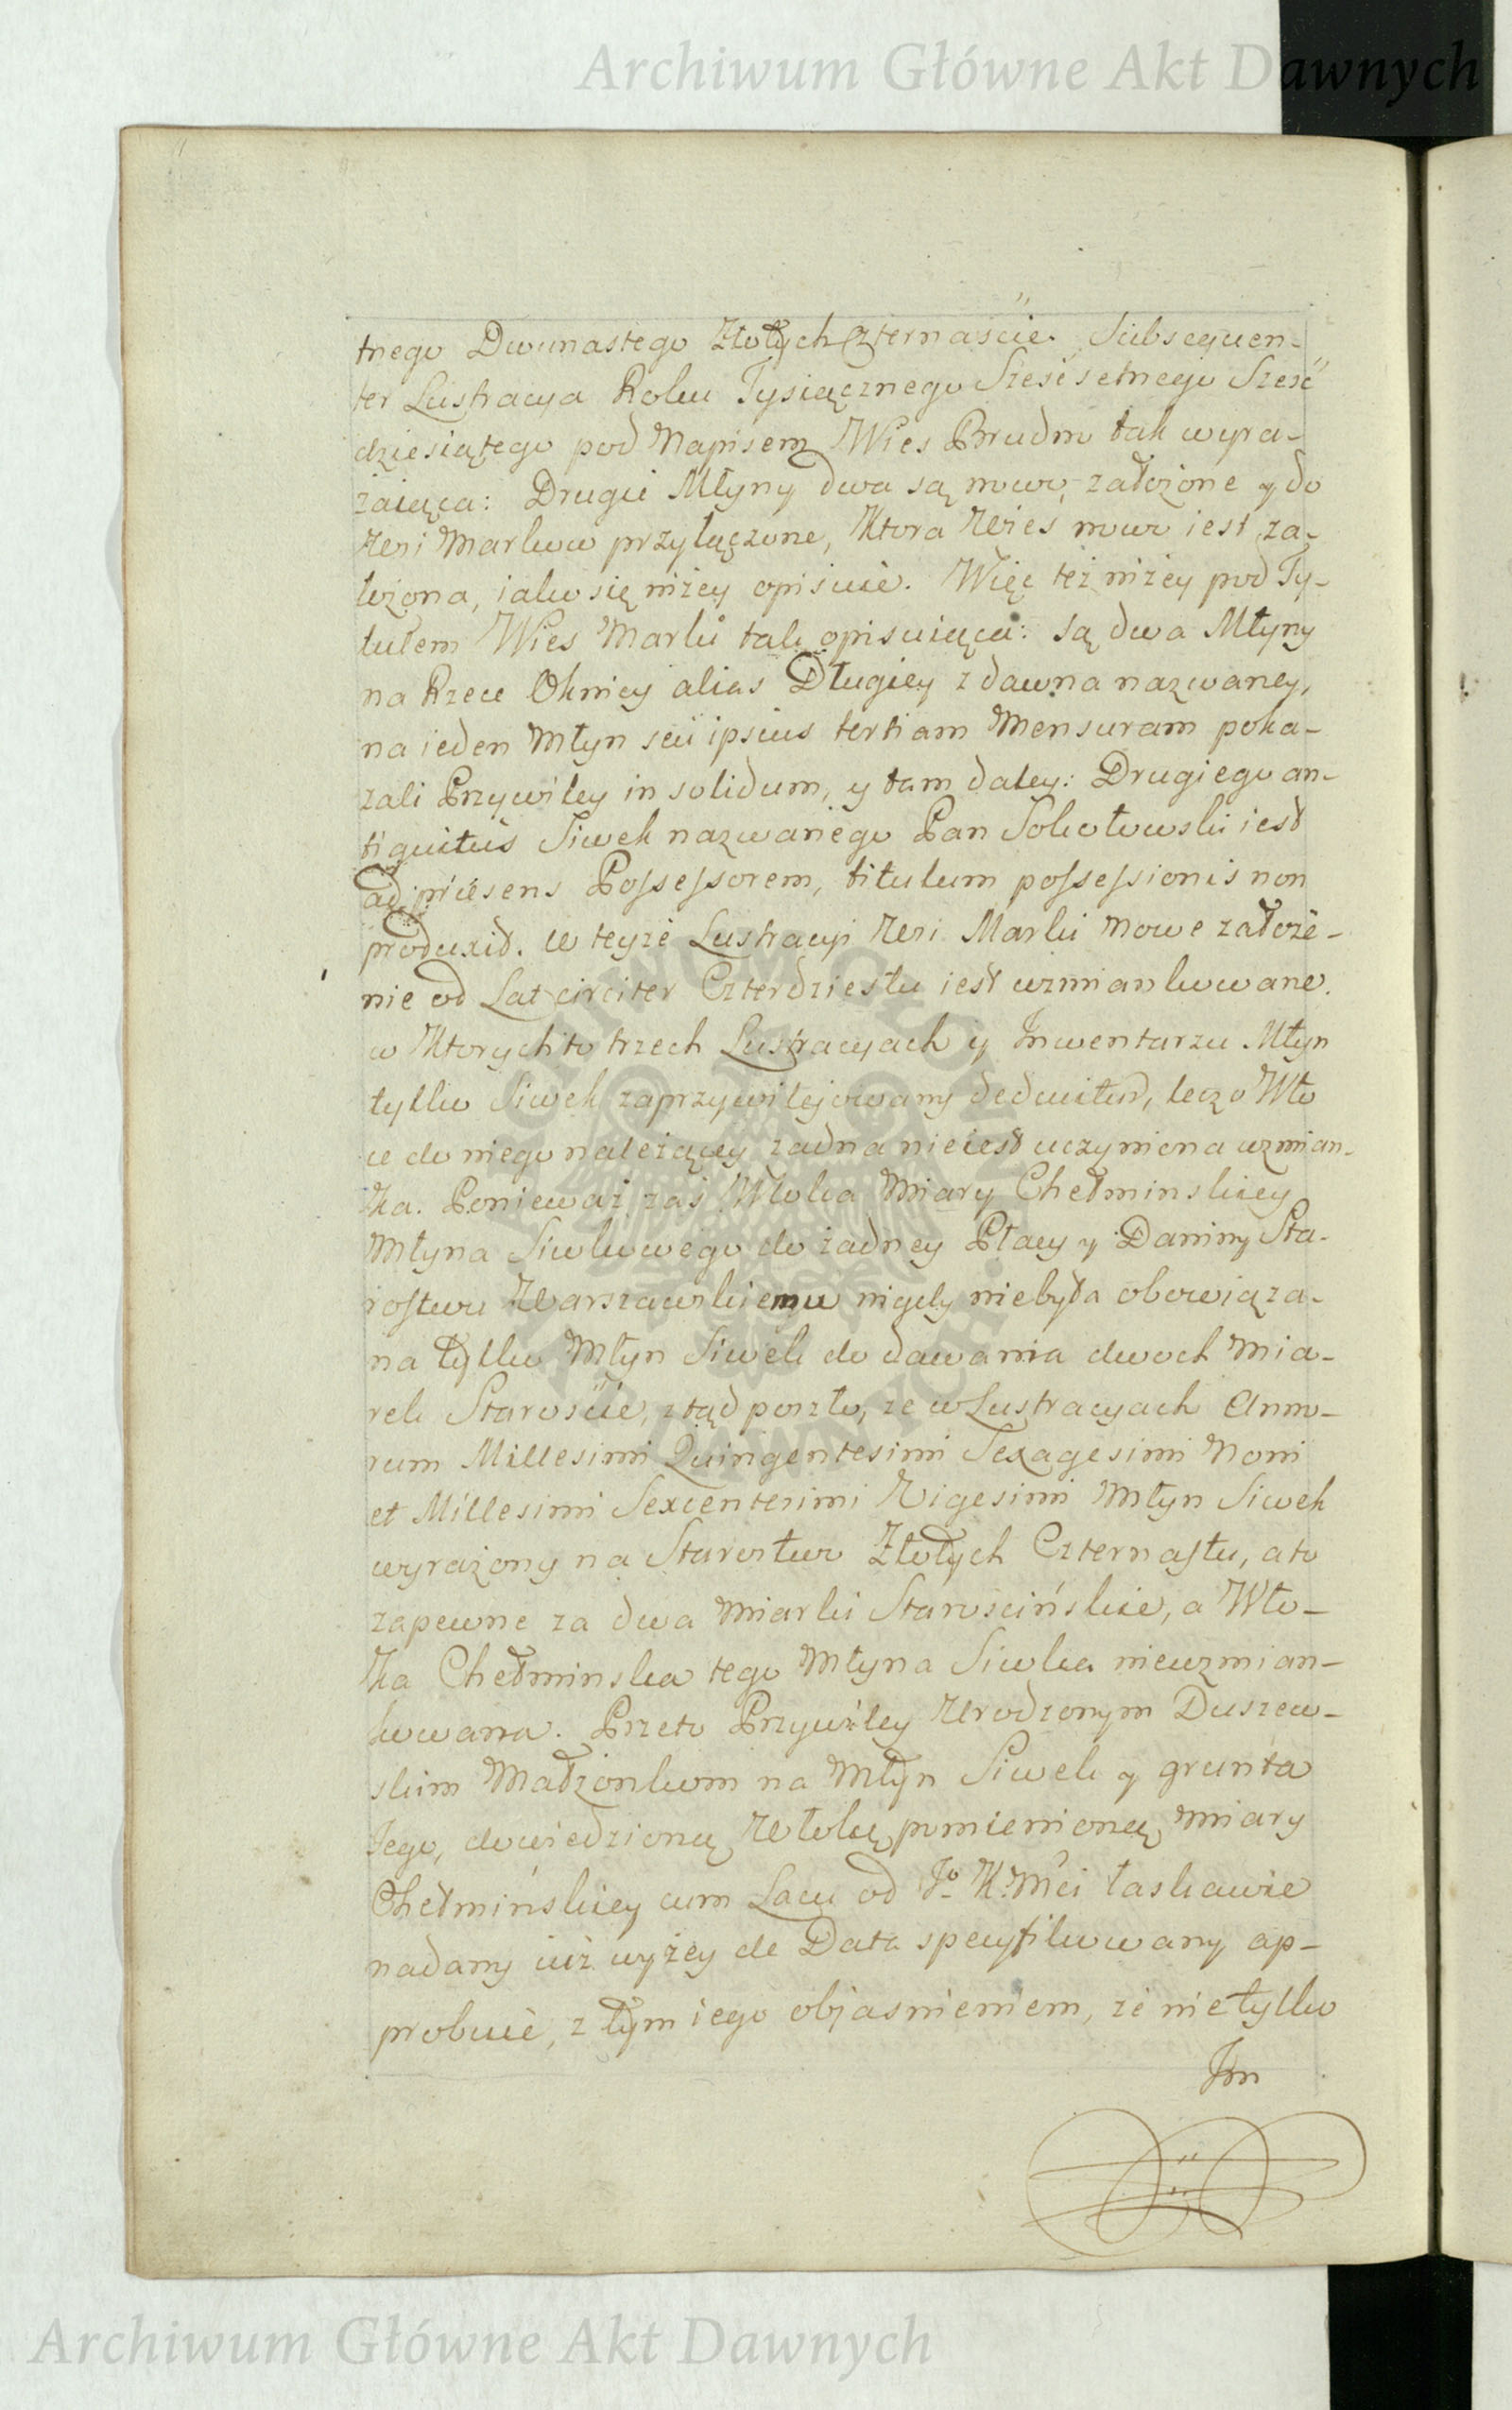 Archiwum Główne Akt Dawnych
tnego Dwunastego Złotych Czternaście. Subsequen-
ter Lustracya Roku Tysiącznego Sześćsetnego Sześć
dziesiątego pod Napisem Wies Brudno tak wyra-
żaiąca: Drugie Młyny dwa są nowo założone y do
Wsi Markow przyłączone, Ktora Wies nowo iest za-
łożona, iako się niżey opisuie. Więc też niżey pod Ty-
tułem Wies Marki tak opisuiąca: są dwa Młyny
na Rzece Oknicy alias Długiey zdawna nazwaney,
na ieden Młyn seu ipsius tertiam Mensuram poka-
zali Przywiley in solidum, y tam daley: Drugiego an-
tiquitus Siwek nazwanego Pan Sokołowski iest
ad praesens Possessorem, titulum possessionis non
produxit. w teyże Lustracyi Wsi Marki nowe założe-
nie od Lat circiter Czterdziestu iest wzmiankowane.
w Ktorych to trzech Lustracyach y Inwentarzu Młyn
tylko Siwek zaprzywilejowany deducitur, lecz o Wło
ce do niego należącey żadna nieiest uczyniona wzmian-
ka. Ponieważ zaś Włoka Miary Chełminskiey
Młyna Siwkowego do żadney Płacy y Daniny Sta-
rostwu Warszawskiemu nigdy niebyła obowiąza-
na tylko Młyn Siwek do dawania dwoch Mia-
rek Starościie, ztąd poszło, że w Lustracyach Anno-
rum Millesimi Quingentesimi Sexagesimi Noni
et Millesimi Sexcentesimi Vigesimi Młyn Siwek
wyrażony na Starostwo Złotych Czternastu, a to
zapewne za dwa miarki Starościńskie, a Wło-
ka Chełminska tego Młyna Siwka niewzmian-
kowana. Przeto Przywiley Urodzonym Duszew-
skim Małżonkom na Młyn Siwek y grunta
Jego, dowiedzioną Włokę pomienioną miary
Chełmińskiey cum Lacu od Jo K. Mci łaskawie
nadany iuż wyżey de Data specyfikowany ap-
probuie, z tym iego objasnieniem, że nietylko
Im
Archiwum Główne Akt Dawnych